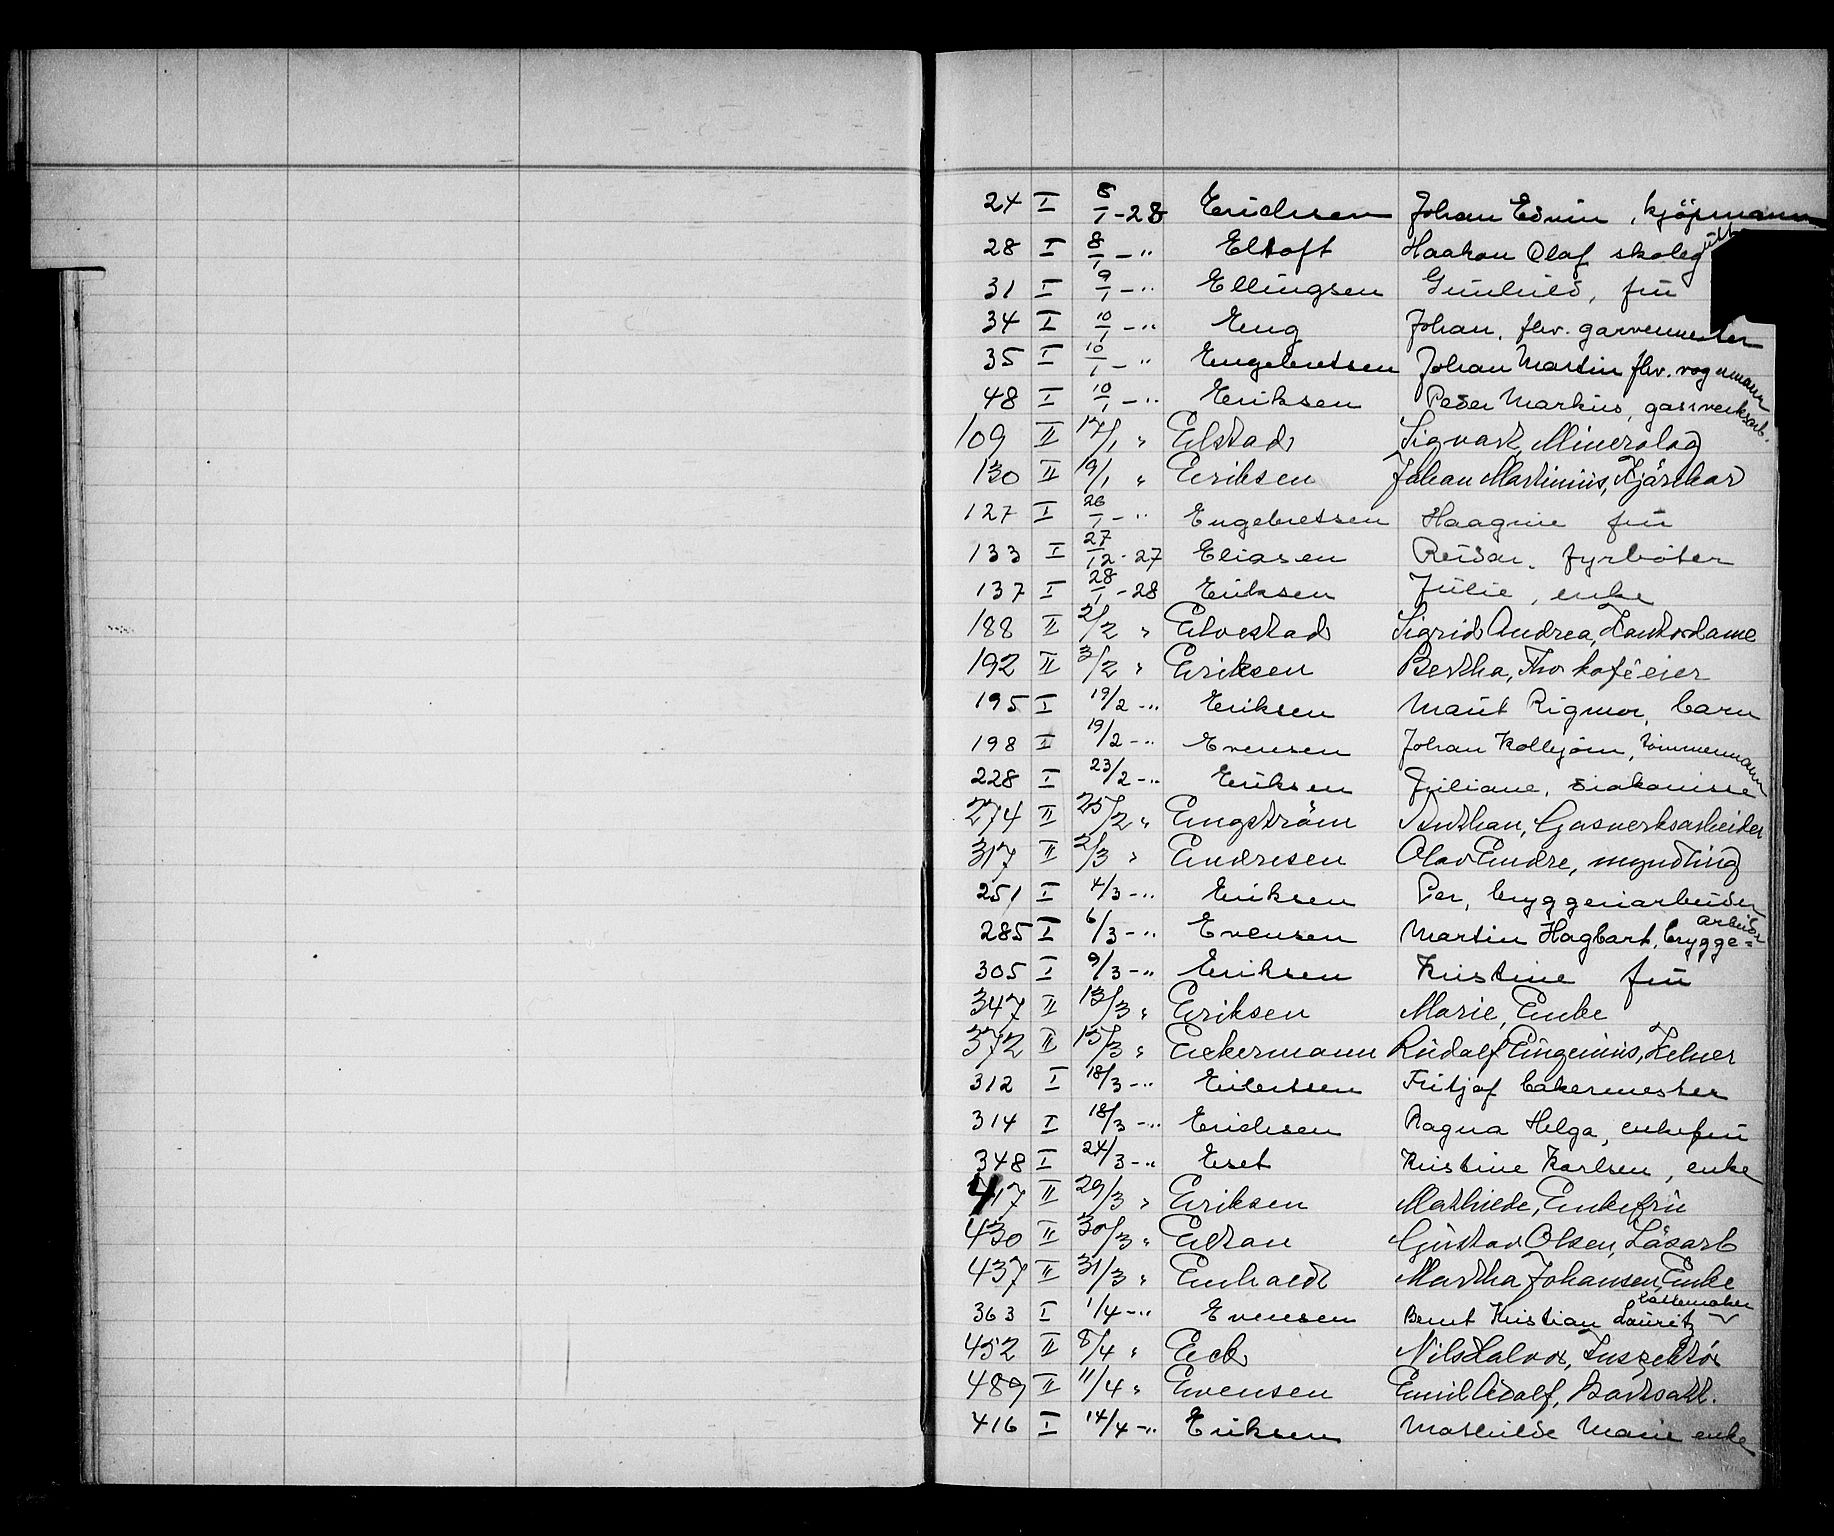 24 I 5/1-28 Erichsen Johan Edvin, kjøpmann
28 I 8/1 - " Eltoft Haakon Olaf skoleg
31 I 9/1 - " Ellingsen Gunhild, frü
34 I 10/1 - " Eng Johan, fhv. garvermester
35 I 10/1 - " Engebretsen Johan Martin fhv. vognmann
48 I 10/1 - " Eriksen Peder Markus, gassverksarb.
109 II 17/1 " Elstad Sigvart, Minerolog
130 II 19/1 " Eriksen Johan Martinius,
127 I 26/1 - " Engebretsen Haagine frü
133 I 27/12-27 Eliasen Reidar, fyrbøter
137 I 28/1-28 Eriksen Julie, enke
188 II 2/2 " Elvestad Sigrid Andrea, Kontordame
192 II 3/2 " Eriksen Bertha, Fhv kaféeier
195 I 19/2 - " Eriksen Maüt Rigmor, barn
198 I 19/2 - " Evensen Johan Kolbjørn, tømmermann
228 I 23/2 - " Eriksen Juliane, diakonisse
274 II 25/2 " Engstrøm Anthan, Gasverksarbeider
317 II 2/3 " Endresen Olav Endre, myndling
251 I 4/3 - " Eriksen Per, bryggeriarbeider
285 I 6/3 - " Evensen Martin Hagbart, brygge= arbeider
305 I 9/3 - " Eriksen Kristine frü
347 II 13/3 " Eriksen Marie, Enke
372 II 15/3 " Eckermann Rüdolf Eugenius, Kelner
312 I 18/3 - " Eilertsen Fritjof bakermester
314 I 18/3 - " Erichsen Ragna Helga, enkefrü
348 I 24/3 - " Eset Kristine Karlsen, enke
417 II 29/3 " Eriksen Mathilde, Enkefrü
430 II 30/3 " Edtan Güstav Olsen, Løsarb
437 II 31/3 " Enhardt Martha Johansen, Enke
363 I 1/4 - " Evensen Bernt Kristian Lauritz
452 II 8/4 " Eck Nils Halvor, Inspektør
489 II 11/4 " Evensen Emil Adolf,
416 I 14/4 - " Eriksen Mathilde Marie enke